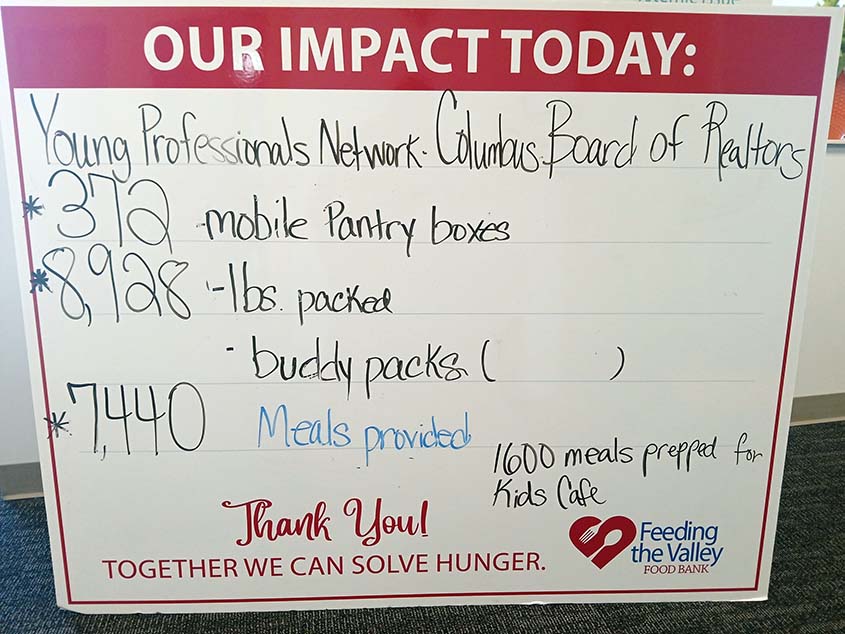 OUR IMPACT TODAY:
Young Professionals Network. Columbus Board of Realtors
* 372 -mobile Pantry boxes
* 8,928 -lbs. packed
- buddy packs ( )
* 7,440 Meals provided
1600 meals prepped for
Kids Cafe
Thank You!
TOGETHER WE CAN SOLVE HUNGER.
Feeding
the Valley
FOOD BANK